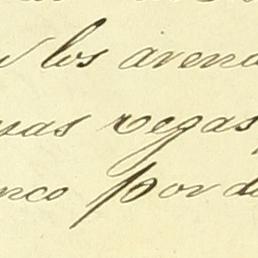 los arena
mas vegas
nco por de